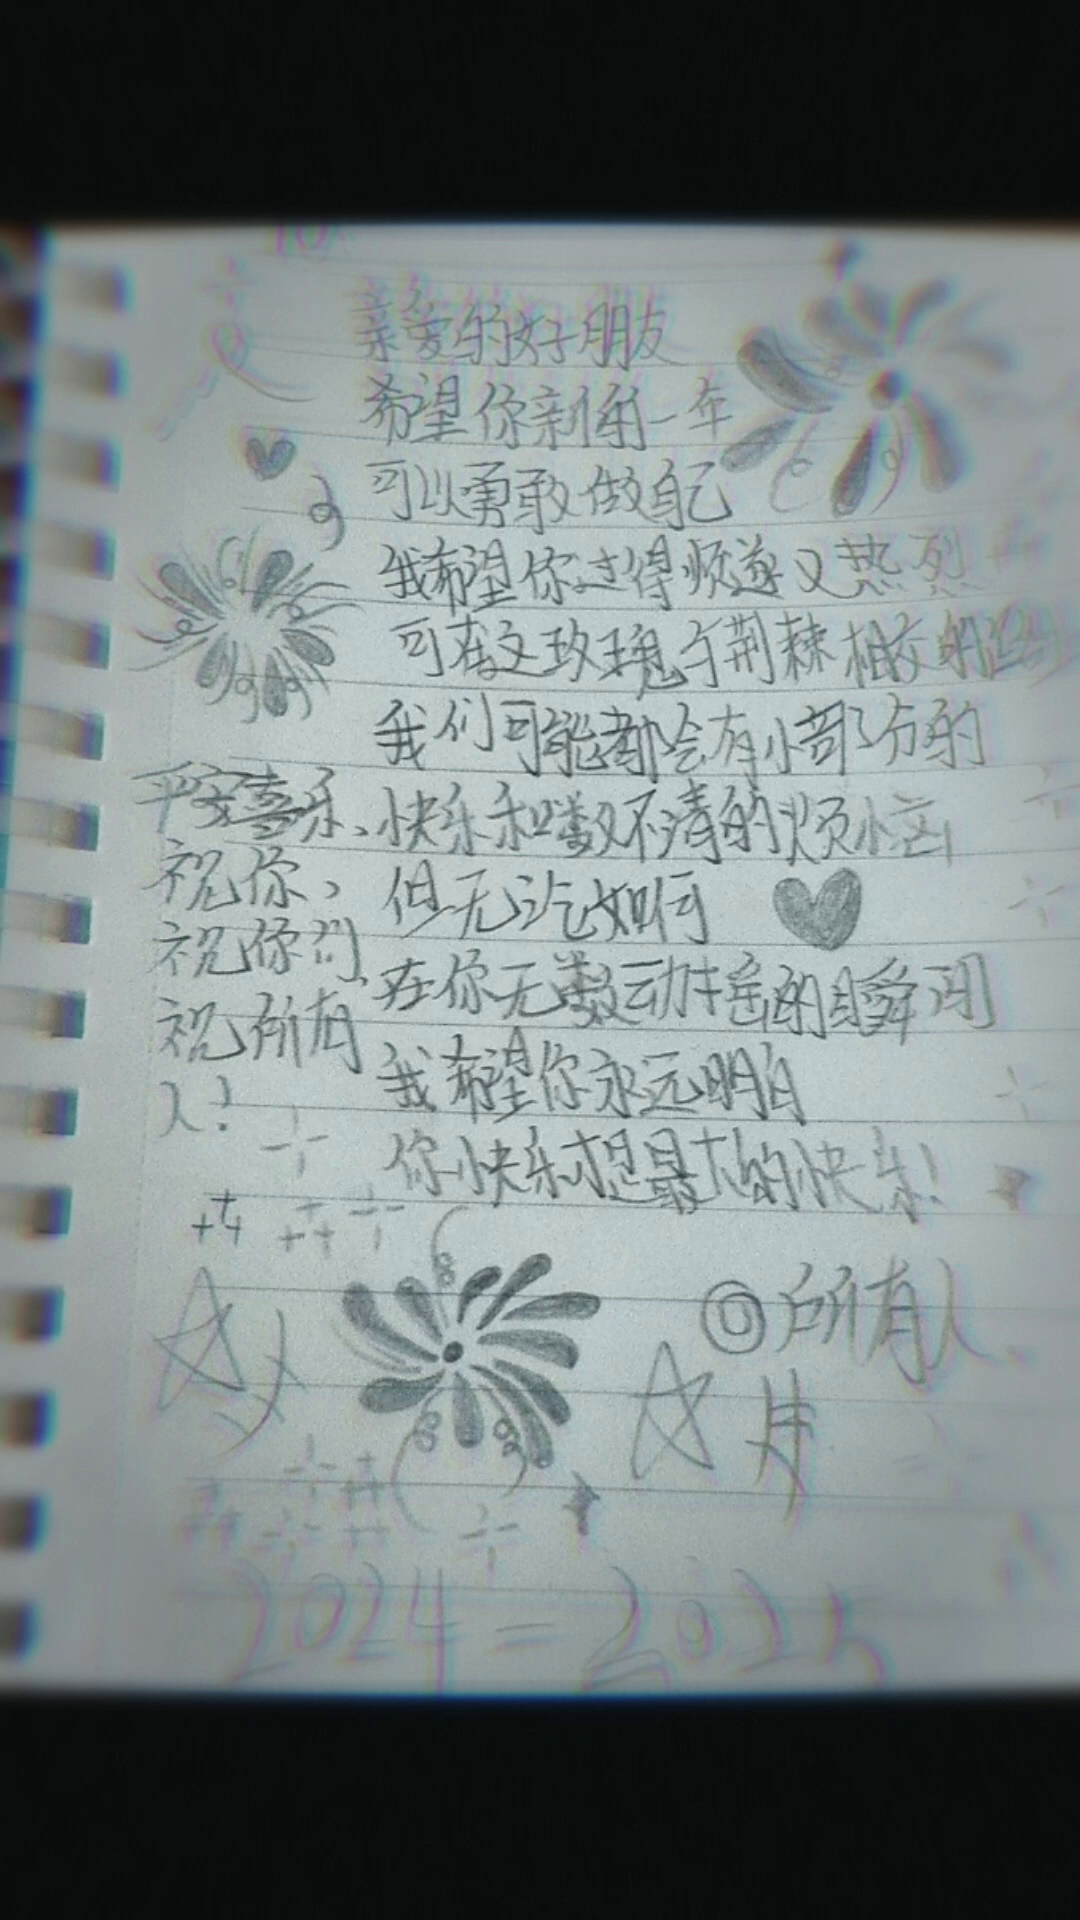 亲爱的好朋友
希望你新的一年
可以勇敢做自己
我希望你过得顺遂又热烈
可在这玫瑰与荆棘相交的
我们可能都会有小部分的
快乐和数不清的烦恼
但无论如何
在你无数动摇的瞬间
我希望你永远明白
你快乐才是最大的快乐!
平安喜乐、
祝你、
祝你们、
祝所有
人!
@所有人
2024=2025